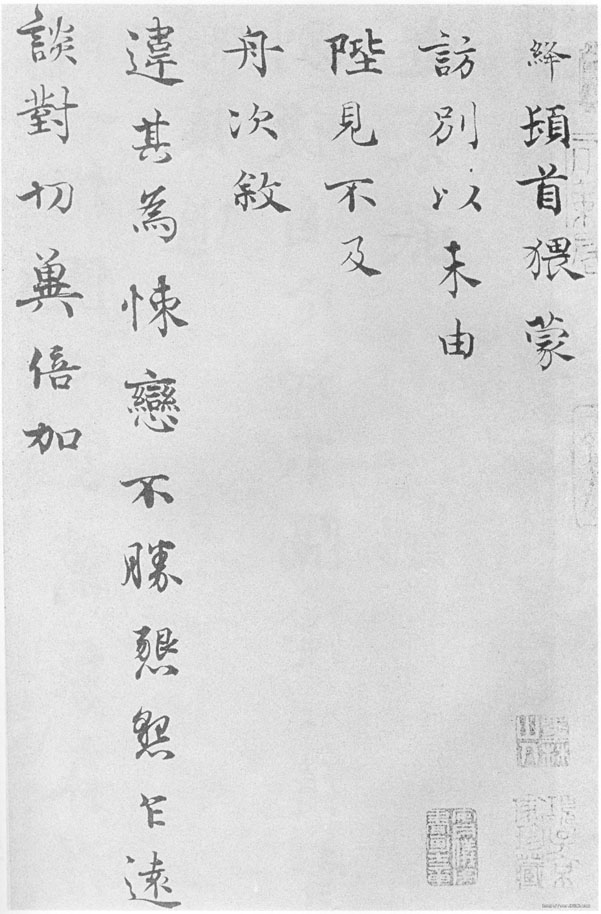 絳頓首猥蒙
訪別以未由
陛見不及
舟次敘
違其為悚戀不勝懇懇乍遠
談對切冀倍加